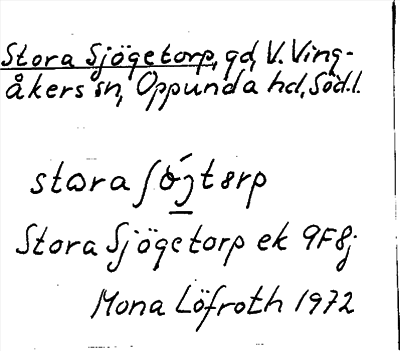 Stora Sjögetorp, gd, V. Ving-
åkers sn, Oppunda hd, Söd.l.
Stora Sjögetorp ek 9F8j
Mona Löfroth 1972